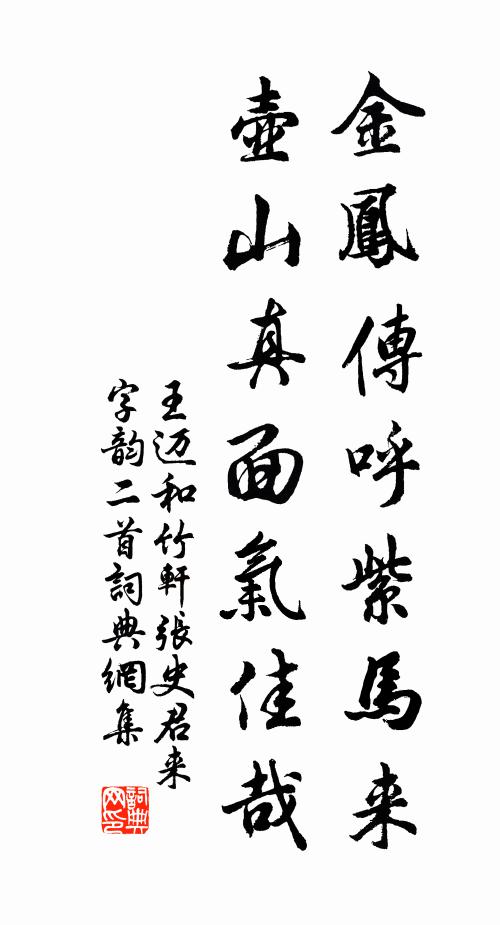 金鳳傳呼紫馬来
壺山真面氣佳哉
王迈和竹軒張史君来
字韵二首詞典網集
詞典网印